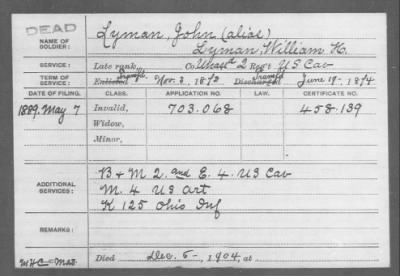 DEAD
NAME OF SOLDIER: Lyman, John (alias)
Lyman, William H.
SERVICE: Late rank, Co. Unasst 2 Reg't US Cav
TERM OF SERVICE: Enlisted Nov. 3, 1873 Discharged June 19, 1874
DATE OF FILING. CLASS. APPLICATION NO. LAW. CERTIFICATE NO.
1889. May 7 Invalid, 703.068 458.139
Widow,
Minor,
ADDITIONAL SERVICES: B & M 2. and E. 4. US Cav
M. 4 US Art
K 125 Ohio Inf
REMARKS:
Died Dec. 5-, 1904, at